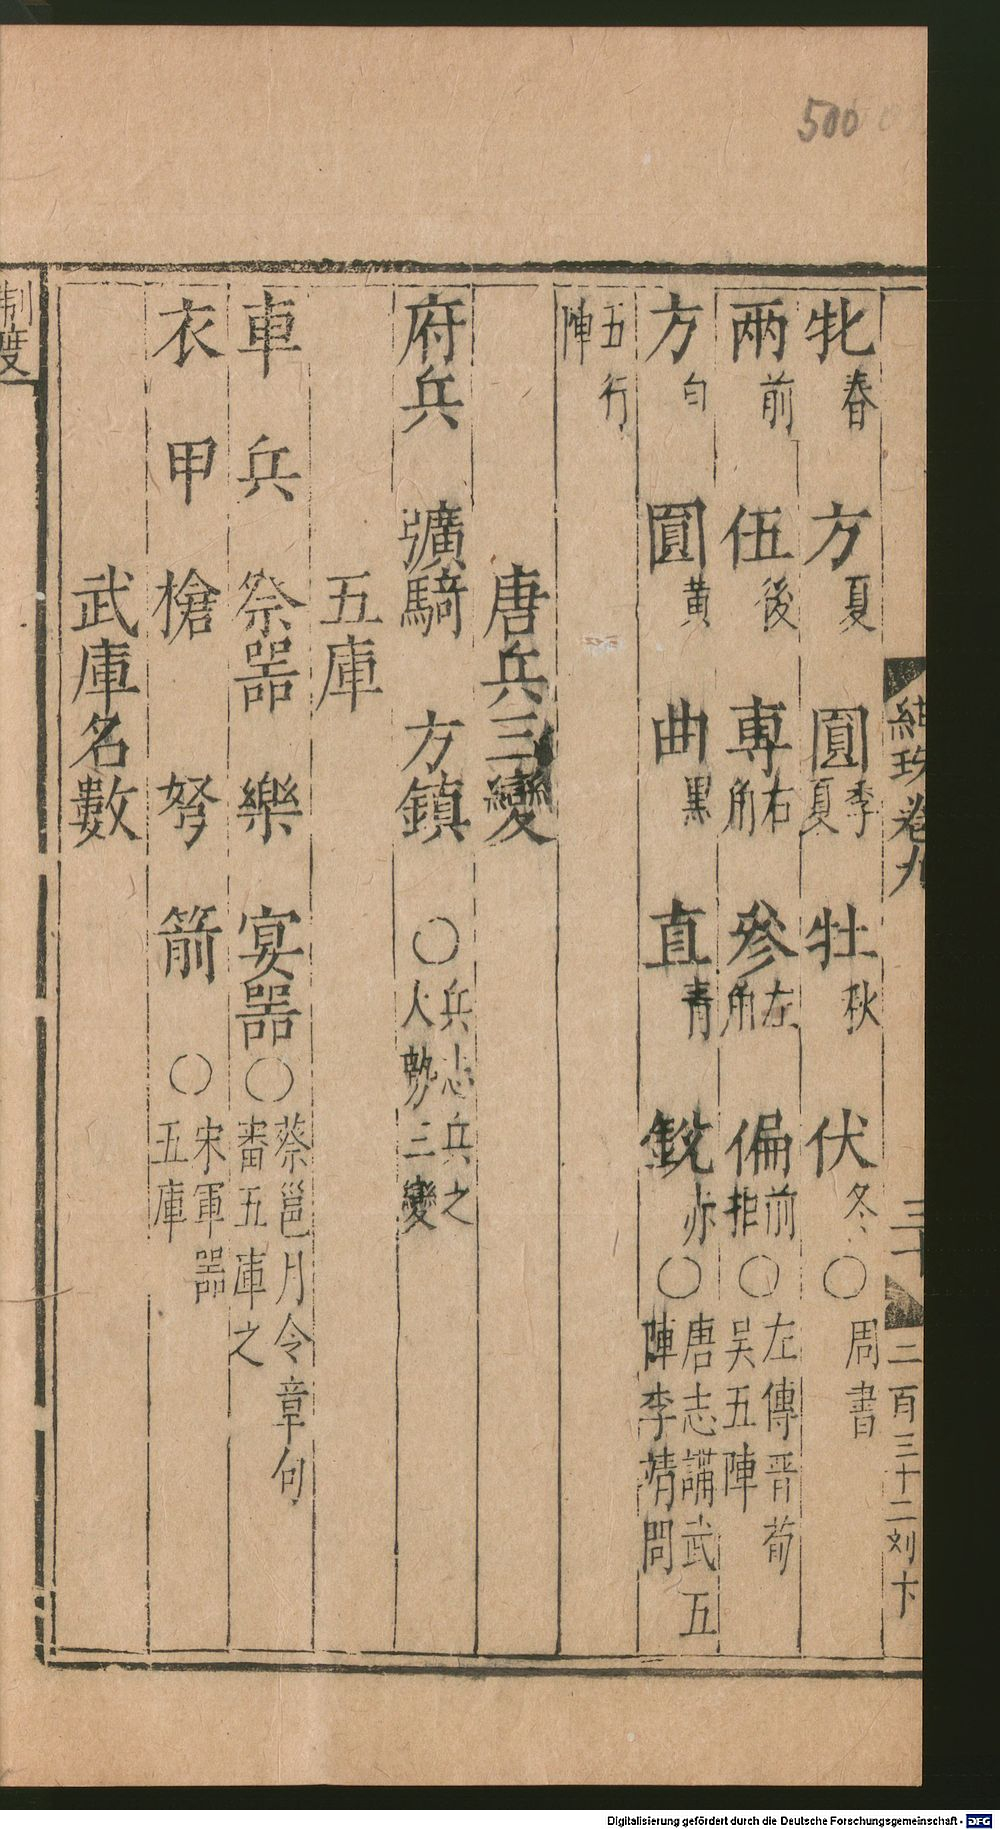 500
牝春 方夏 圓季夏 牡秋 伏冬 〇周書
兩前 伍後 專右角 參左角 偏前拒 〇左傳晋荀吴五陣
方白 圓黃 曲黑 直青 銳赤 〇唐志講武五陣李靖問
五行陣
唐兵三變
府兵 彍騎 方鎮 〇兵志兵之大勢三變
五庫
車 兵 祭器 樂 宴器 〇蔡邕月令章句審五庫之
衣 甲 槍 弩 箭 〇宋軍器五庫
武庫名數
卷九
二百三十二刘卞
制度
Digitalisierung gefördert durch die Deutsche Forschungsgemeinschaft - DFG